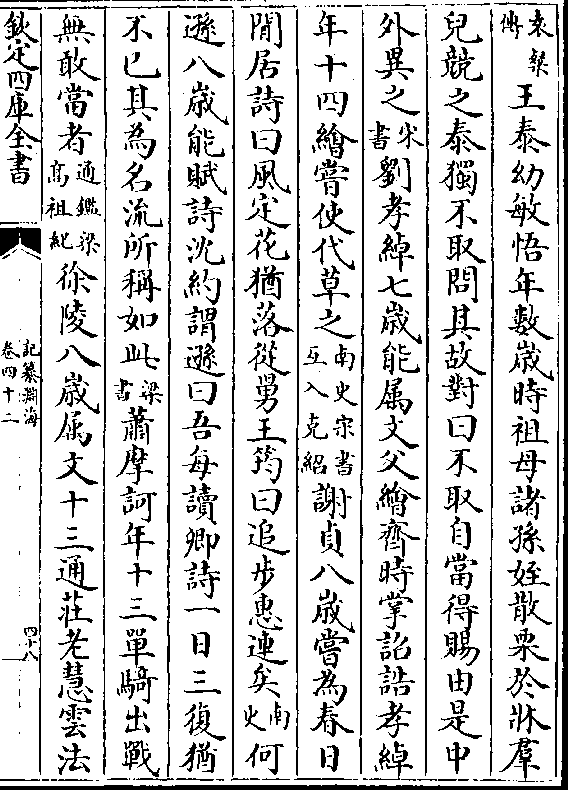 袁粲傳王泰幼敏悟年數歲時祖母諸孫姪散栗於牀羣
兒競之泰獨不取問其故對曰不取自當得賜由是中
外異之宋書劉孝綽七歲能属文父繪齊時掌詔誥孝綽
年十四繪嘗使代草之南史宋書互入克紹謝貞八歲嘗為春日
閒居詩曰風定花猶落從舅王筠曰追步惠連矣南史何
遜八歲能賦詩沈約謂遜曰吾每讀卿詩一日三復猶
不已其為名流所稱如此梁書蕭摩訶年十三單騎出戰
無敢當者通鑑梁高祖紀徐陵八歲属文十三通莊老慧雲法
欽定四庫全書
記纂淵海
卷四十二
四十八